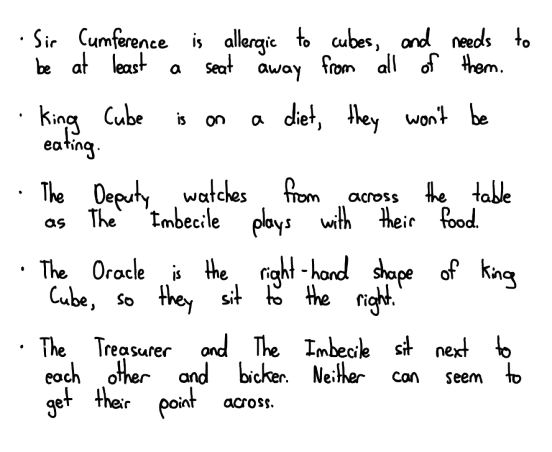 · Sir Cumference is allergic to cubes, and needs to
be at least a seat away from all of them.
· King Cube is on a diet, they won't be
eating.
· The Deputy watches from across the table
as The Imbecile plays with their food.
· The Oracle is the right-hand shape of King
Cube, so they sit to the right.
· The Treasurer and The Imbecile sit next to
each other and bicker. Neither can seem to
get their point across.